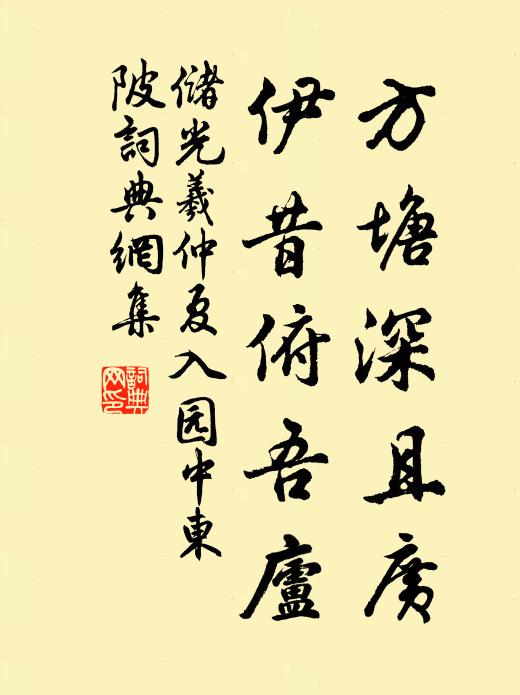 方塘深且广
伊昔俯吾廬
储光羲仲夏入园中東
陂詞典網集
詞典
网印